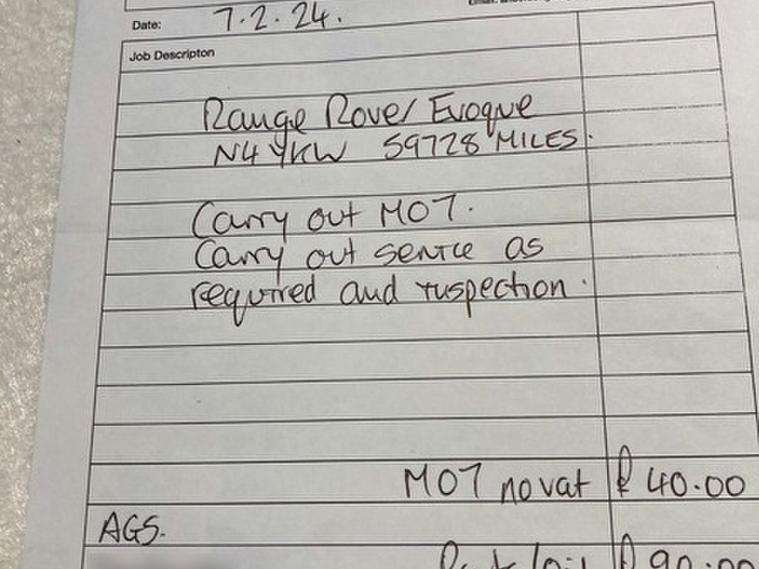 Date: 7.2.24.
Job Descripton
Range Rover Evoque
N4 YKW 59728 MILES.
Carry out MOT.
Carry out service as
required and inspection.
MOT no vat £ 40.00
AGS.
£ 90.00